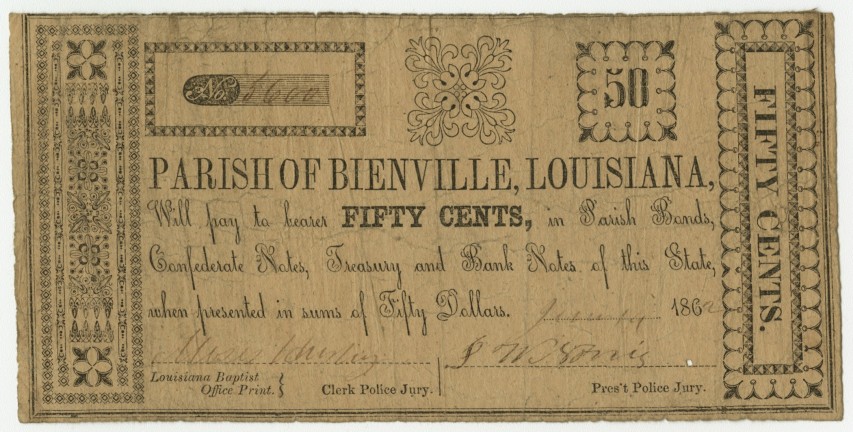 No. 8600
50
PARISH OF BIENVILLE, LOUISIANA,
Will pay to bearer FIFTY CENTS, in Parish Bonds,
Confederate Notes, Treasury and Bank Notes of this State,
when presented in sums of Fifty Dollars. 1862
Louisiana Baptist
Office Print. }
Clerk Police Jury.
Pres't Police Jury.
FIFTY CENTS.